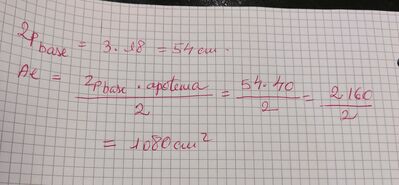 2p base = 3 . 18 = 54 cm .
Al = 2p base . apotema / 2 = 54 . 40 / 2 = 2 160 / 2
= 1080 cm²